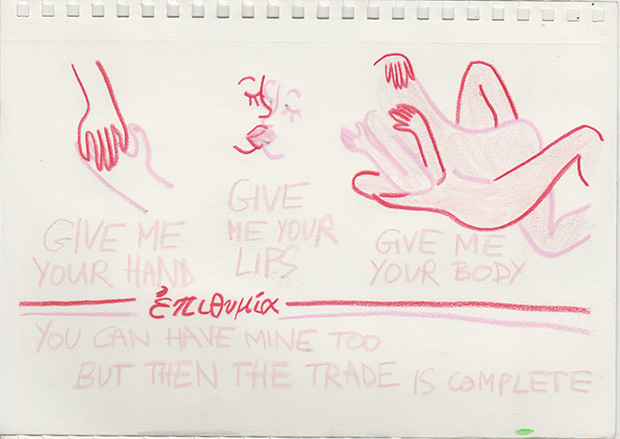 GIVE ME
YOUR HAND
GIVE
ME YOUR
LIPS
GIVE ME
YOUR BODY
ἐπιθυμία
YOU CAN HAVE MINE TOO
BUT THEN THE TRADE IS COMPLETE